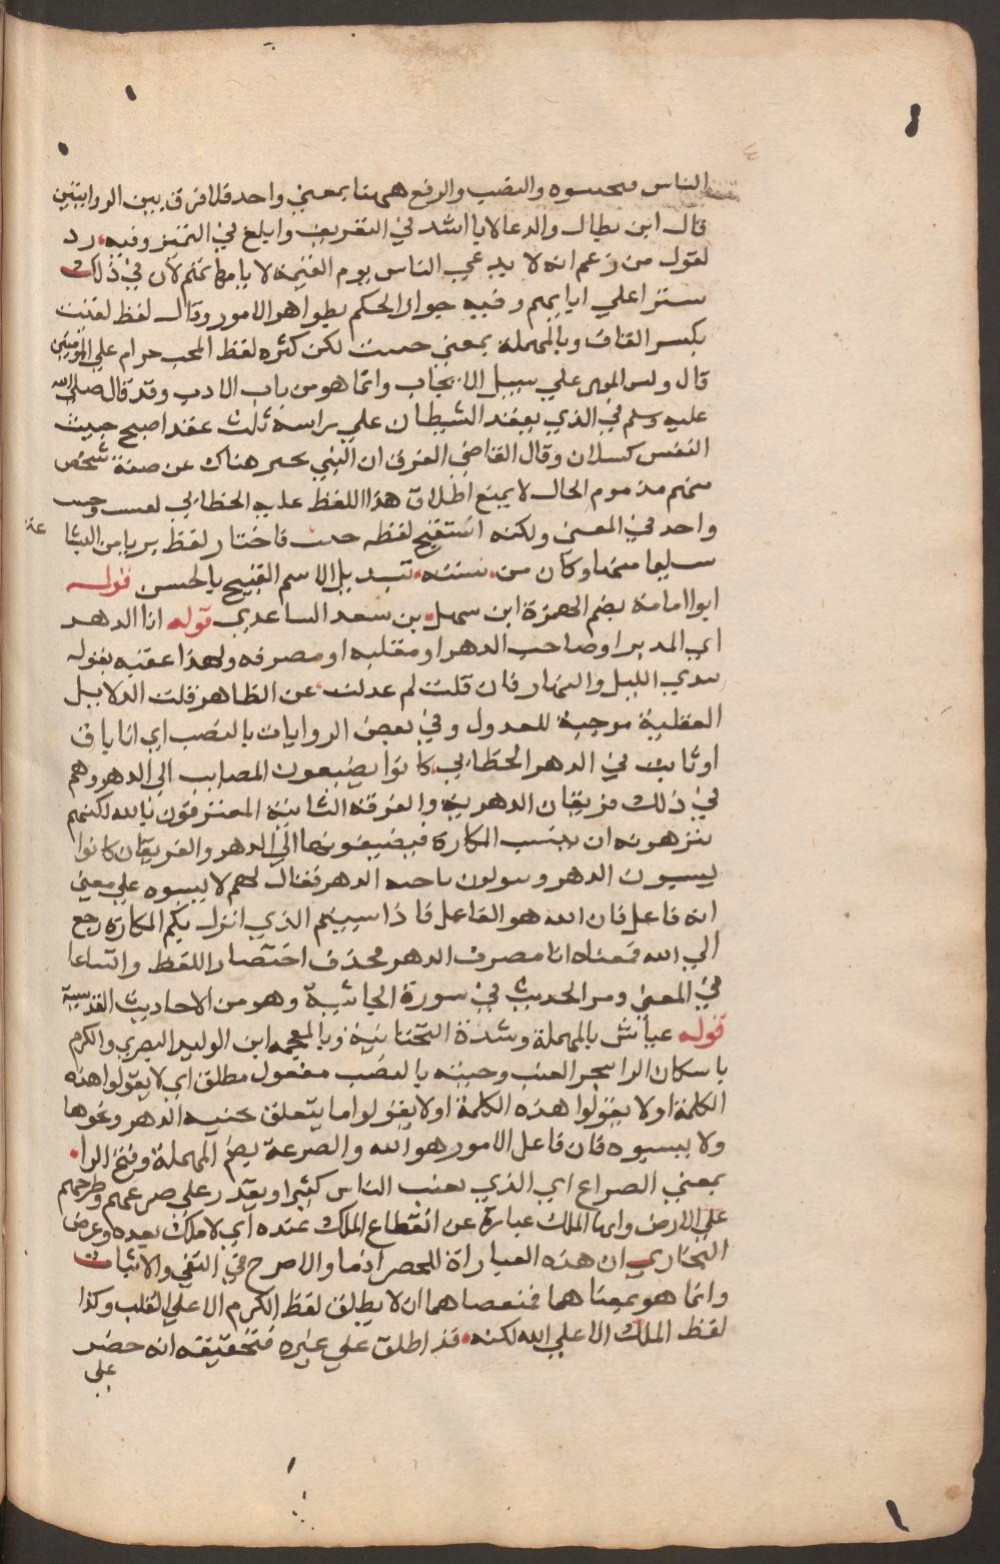 الناس محبسوه والنصب والرفع ههنا بمعني واحد فلا فرق بين الروايتين
قال ابن بطال والدعا لابا اشد في التعريف وابلغ في التميز وفيه رد
لقول من زعم انه لا يدعي الناس يوم القيمة لا بامهاتهم لان في ذلك
سترا علي ابايهم وفيه جواز الحكم بظواهر الامور وقال لفظ لقست
بكسر القاف وبالمهملة بمعني خبثت لكن كره لفظ الخبث حرام علي المومنين
قال وليس النهي علي سبيل الايجاب وانما هو من باب الادب وقد قال صلي الله
عليه وسلم في الذي يعقد الشيطان علي راسه ثلث عقد اصبح خبيث
النفس كسلان وقال القاضي الفرق ان النبي يخبر هناك عن صفة شخص
مبهم مذموم الحال لا يمنع اطلاق هذا اللفظ عليه الخطابي لقست وخبثت
واحد في المعني ولكنه استقبح لفظه خبث فاختار لفظ بريا من البشاعة
سليما منها وكان من سنته تبديل الاسم القبيح بالحسن قوله
ابوا امامة بضم الهمزة ابن سهل بن سعد الساعدي قوله انا الدهر
اي المدبر او صاحب الدهر او مقلبه او مصرفه ولهذا عقبه بقوله
بيدي الليل والنهار فان قلت لم عدلت عن الظاهر قلت الدلايل
العقلية موجبة للعدول وفي بعض الروايات بالنصب اي انا باق
او ثابت في الدهر الخطابي كانوا يضيفون المصايب الي الدهر وهم
في ذلك فريقان الدهرية والفرقة الثانية المعترفون بالله لكنهم
ينزهونه ان ينسب المكاره فيضيفونها الي الدهر والفريقان كانوا
يسبون الدهر ويقولون يا خيبة الدهر فقال لهم لا يسبوه علي معني
انه فاعل فان الله هو الفاعل فاذا سببتم الذي انزل بكم المكاره رجع
الي الله فمعناه انا مصرف الدهر فحذف اختصارا للفظ واتساعا
في المعني ومر الحديث في سورة الجاثية وهو من الاحاديث القدسية
قوله عياش بالمهملة وشدة التحتانية وبالمعجمة ابن الوليد البصري والكرم
باسكان الرا شجر العنب وخيبة بالنصب مفعول مطلق اي لا يقولوا هذه
الكلمة او لا يقولوا هذه الكلمة او لا يقولوا ما يتعلق بخيبة الدهر ونحوها
ولا يسبوه فان فاعل الامور هو الله والصرعة بضم المهملة وفتح الرا
بمعني الصراع اي الذي يغلب الناس كثيرا ويقدر علي صرعهم وطرحهم
علي الارض وانها الملك عبارة عن انقطاع الملك عنده اي لا ملك بعده وغرض
البخاري ان هذه العبارة للحصر اذ ما والا صرح في النفي والاثبات
وانما هو بمعناهما فمقتضاهما ان لا يطلق لفظ الكرم الا علي القلب وكذا
لفظ الملك الا علي الله لكنه قد اطلق علي غيره فتحقيقه انه حضر
علي